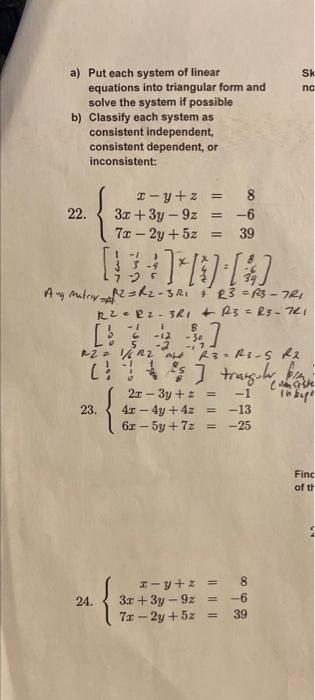 a) Put each system of linear
equations into triangular form and
solve the system if possible
b) Classify each system as
consistent independent,
consistent dependent, or
inconsistent:
Sk
no
x − y + z = 8
22. 3x + 3y − 9z = −6
7x − 2y + 5z = 39
[1 -1 1 3 3 -9 7 -2 5] * [x y z] = [8 -6 39]
R2 = R2 - 3R1 + R3 = R3 - 7R1
R2 = R2 - 3R1 + R3 = R3 - 7R1
1 -1 1 8
0 6 -12 -30
0 5 -2 -17
R2 = 1/6 R2 and R3 = R3 - 5 R2
triangular form
2x − 3y + z = −1
23. 4x − 4y + 4z = −13
6x − 5y + 7z = −25
Finc
of th
x − y + z = 8
24. 3x + 3y − 9z = −6
7x − 2y + 5z = 39